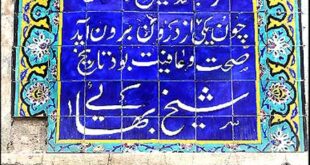 چون یکی از درون برون آید
صحت و عافیت بود تاریخ
شیخ بهائی